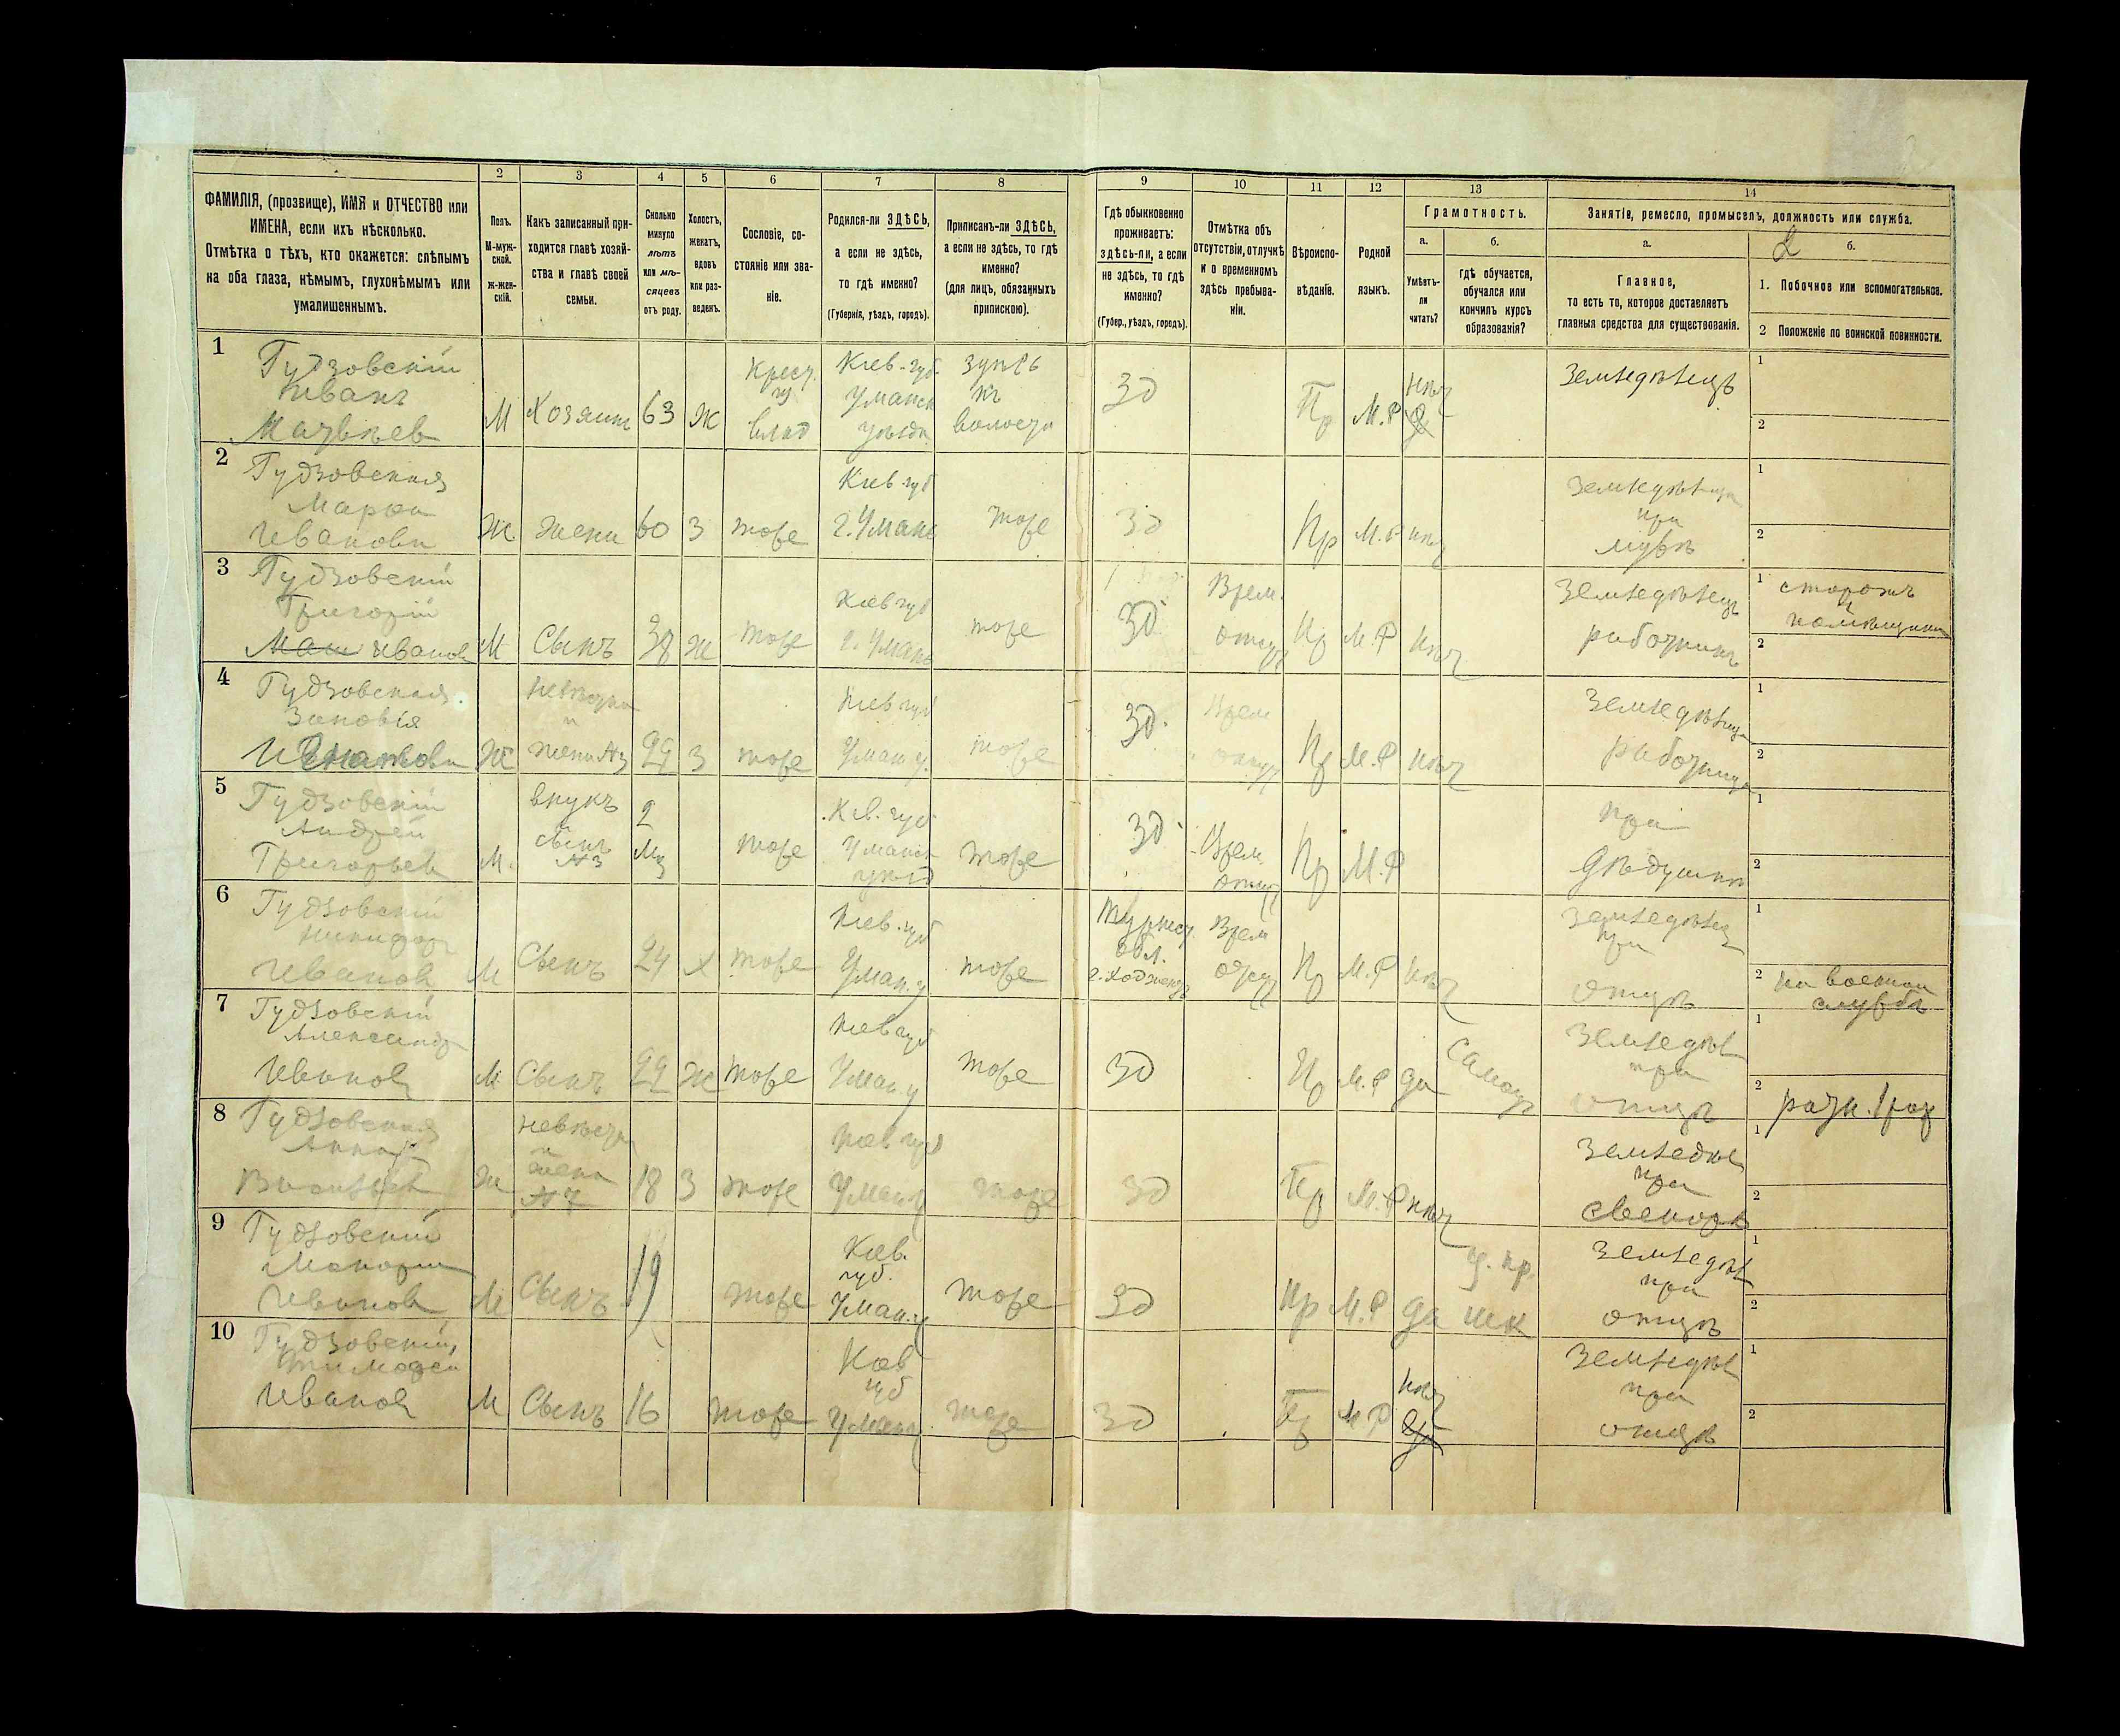 2 3 4 5 6 7 8 9 10 11 12 13 14
ФАМИЛІЯ, (прозвище), ИМЯ и ОТЧЕСТВО или
ИМЕНА, если ихъ нѣсколько.
Отмѣтка о тѣхъ, кто окажется: слѣпымъ
на оба глаза, нѣмымъ, глухонѣмымъ или
умалишеннымъ.
Полъ.
М-муж-
ской.
ж-жен-
скій.
Какъ записанный при-
ходится главѣ хозяй-
ства и главѣ своей
семьи.
Сколько
минуло
лѣтъ
или мѣ-
сяцевъ
отъ роду.
Холостъ,
женатъ,
вдовъ
или раз-
веденъ.
Сословіе, со-
стояніе или зва-
ніе.
Родился-ли ЗДѢСЬ,
а если не здѣсь,
то гдѣ именно?
(Губернія, уѣздъ, городъ).
Приписанъ-ли ЗДѢСЬ,
а если не здѣсь, то гдѣ
именно?
(для лицъ, обязанныхъ
припискою).
Гдѣ обыкновенно
проживаетъ:
здѣсь-ли, а если
не здѣсь, то гдѣ
именно?
(Губер., уѣздъ, городъ).
Отмѣтка объ
отсутствіи, отлучкѣ
и о временномъ
здѣсь пребыва-
ніи.
Вѣроиспо-
вѣданіе.
Родной
языкъ.
Грамотность.
а.
Умѣетъ-
ли
читать?
б.
гдѣ обучается,
обучался или
кончилъ курсъ
образованія?
Занятіе, ремесло, промыселъ, должность или служба.
а.
Главное,
то есть то, которое доставляетъ
главныя средства для существованія.
2
б.
1. Побочное или вспомогательное.
2 Положеніе по воинской повинности.
1
Гудзовскій
Иванъ
Матвѣев
М
Хозяинъ
63
Ж
Крест.
из
влад
Кіев. губ.
Уманск
уѣзда
волости
Зд
Пр
М.Р
нѣт
Земледѣлецъ
1
2
2
Гудзовская
Марфа
Иванова
Ж
Жена
60
З
тоже
Кіев губ
г. Умань
тоже
Зд
Пр
М.Р
нѣт
Земледѣлица
при
мужѣ
1
2
3
Гудзовскій
Григорій
Иванов
М
Сынъ
Ж
тоже
Кіев губ
г. Умань
тоже
Зд
Врем.
отсут
Пр
М.Р
нѣт
Земледѣлецъ
работникъ
1 сторожъ
2
4
Гудзовская
Зиновія
Ж
невѣстка
и
жена №3
22
З
тоже
Кіев губ
Уман у.
тоже
Зд.
Врем
отсут
Пр
М.Р
нѣт
Земледѣлица
работница
1
2
5
Гудзовскій
Андрей
Григорьев
М.
внукъ
сынъ
№3
2
Мц
тоже
Кіев. губ
Уманск
уѣзд
тоже
Зд
Врем
отсут
Пр
М.Р
при
дѣдушкѣ
1
2
6
Гудзовскій
Никифор
Иванов
М
Сынъ
24
Х
тоже
Кіев. губ
Уман. у
тоже
Туркест.
обл.
г. Ходжентъ
Врем
отсут
Пр
М.Р
нѣт
земледѣлец
при
отцѣ
1
2 на военной
службѣ
7
Гудзовскій
Александр
Иванов
М
Сынъ
22
Ж
тоже
Кіев губ
Уман. у
тоже
Зд
Пр
М.Р
да
Самоуч
Земледѣл
при
отцѣ
1
2 ратн. 1 раз
8
Гудзовская
Анна
Ж
невѣстка
и
жена
№7
18
З
тоже
Кіев губ
Уман у
тоже
Зд
Пр
М.Р
нѣт
Земледѣл
при
свекорѣ
1
2
9
Гудзовскій
Иванов
М
Сынъ
19
тоже
Кіев.
губ.
Уман. у
тоже
Зд
Пр
М.Р
да
ц. пр.
шк
Земледѣл
при
отцѣ
1
2
10
Гудзовскій,
Тимофей
Иванов
М
Сынъ
16
тоже
Кіев
губ
Уман у
тоже
Зд
Пр
М.Р
нѣт
да
Земледѣл
при
отцѣ
1
2